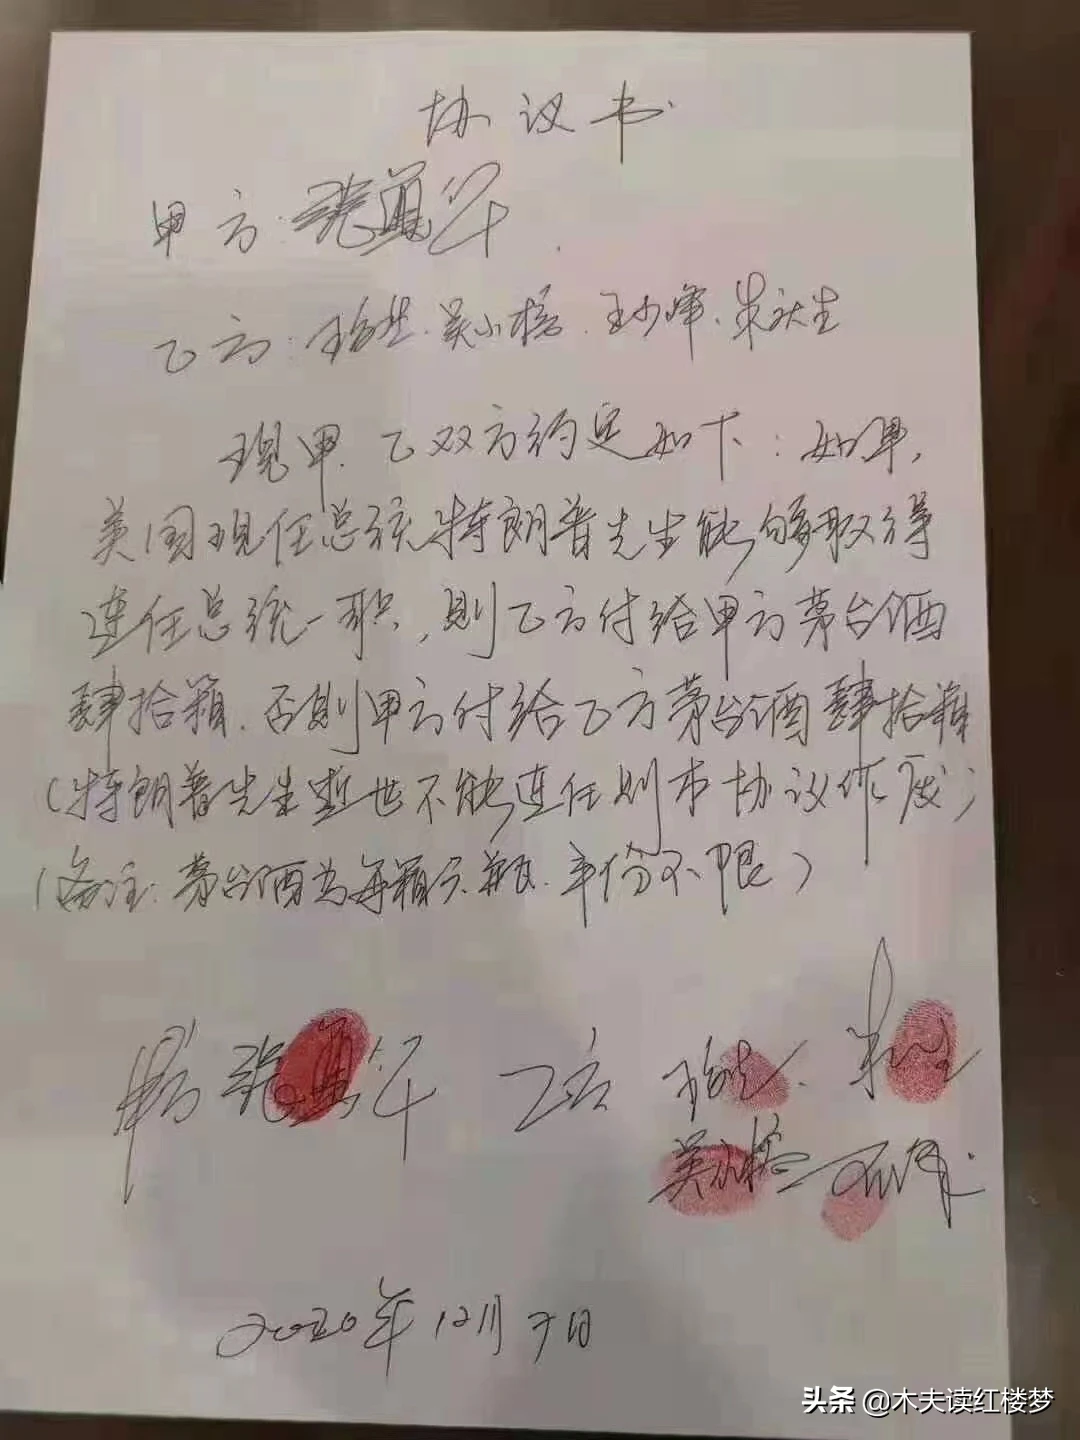 协议书
甲方:张
乙方: 吴小榕、王少峰、朱庆生
现甲、乙双方约定如下:如果,
美国现任总统特朗普先生能够取得
连任总统一职,则乙方付给甲方茅台酒
肆拾箱.否则甲方付给乙方茅台酒肆拾箱
(特朗普先生逝世不能连任则本协议作废)
(备注:茅台酒为每箱六瓶.年份不限)
甲方 张 乙方
吴小榕
2020年12月7日
头条 @木夫读红楼梦